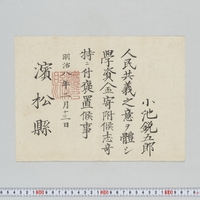 小池鋭五郎
人民共義之意ヲ體シ
學資金寄附候志奇
特ニ付褒置候事
明治八年一月十三日
濱松縣